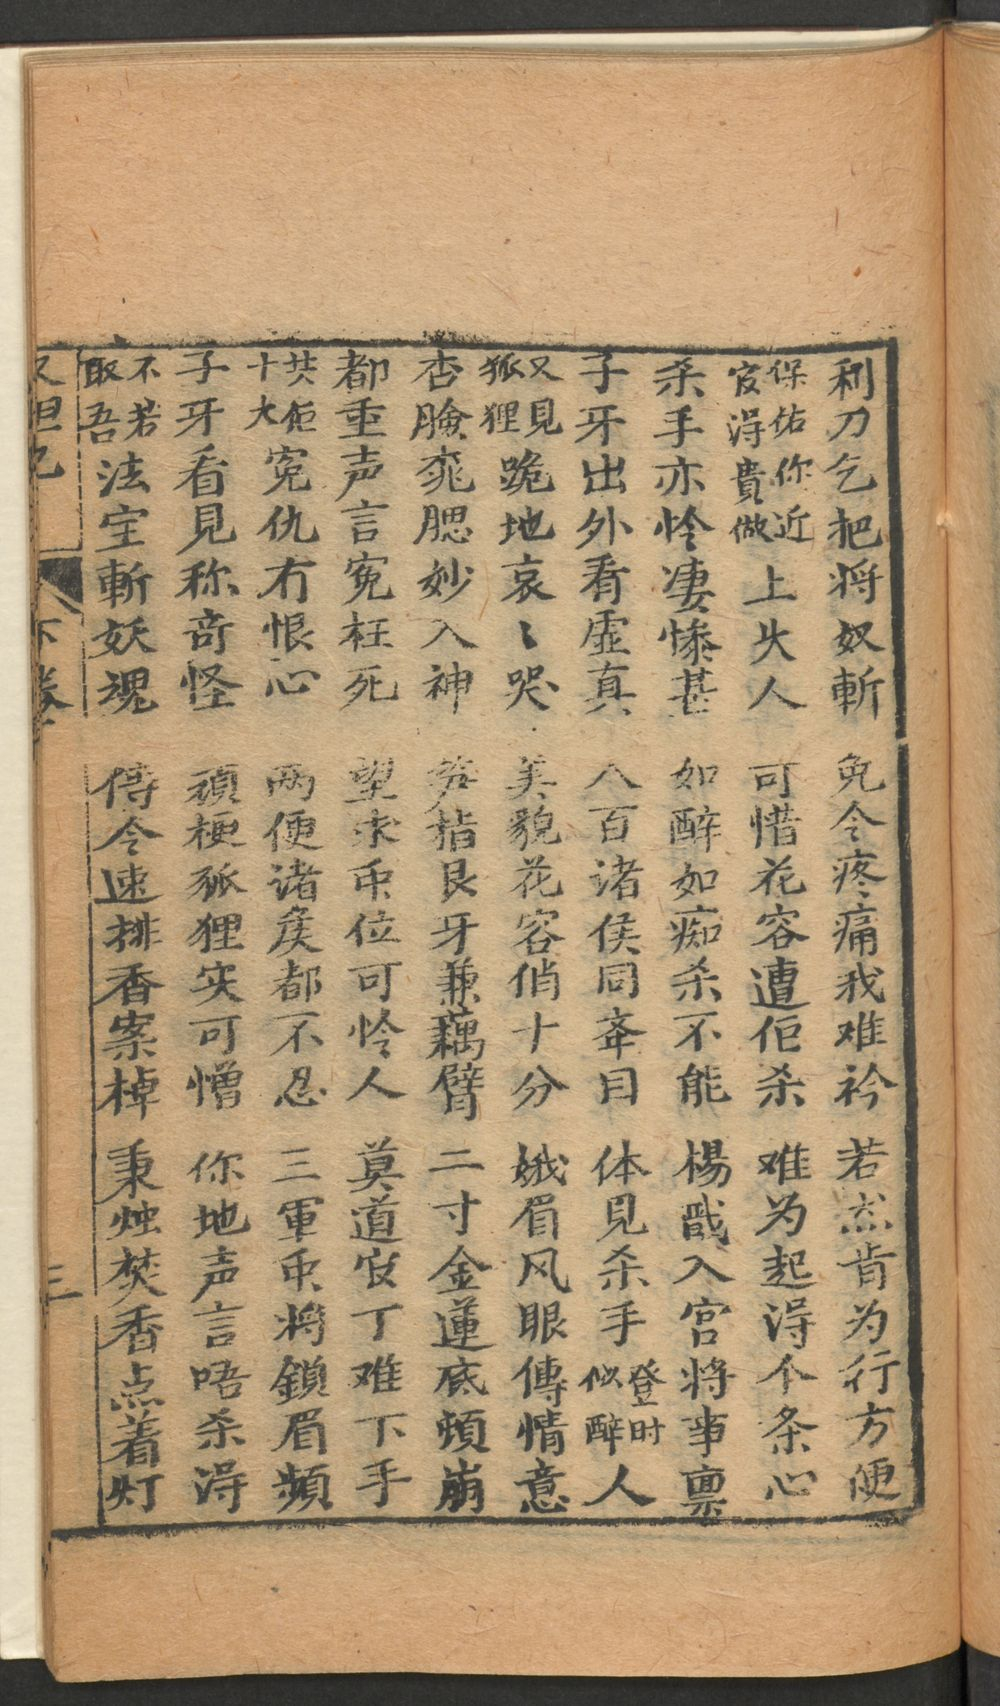 利刀乞把将奴斬 免令疼痛我难衿 若然肯为行方便
保佑你近官淂貴做上大人 可惜花容遭佢杀 难为起淂个条心
杀手亦怜凄惨甚 如醉如痴杀不能 楊戬入宫将事禀
子牙出外看虚真 八百诸侯同夲目 体見杀手登时似醉人
又見狐狸跪地哀〻哭 美貌花容俏十分 娥眉风眼傳情意
杏臉桃腮妙入神 笋指艮牙兼藕臂 二寸金蓮底頓崩
都重声言冤枉死 望求帀位可怜人 莫道官丁难下手
共佢十大冤仇冇恨心 两便诸侯都不忍 三軍帀将鎖眉頻
子牙看見称奇怪 頑梗狐狸实可憎 你地声言唔杀淂
不若取吾法宝斬妖魂 侍令速排香案棹 秉烛焚香点着灯
又妲己 下卷 三